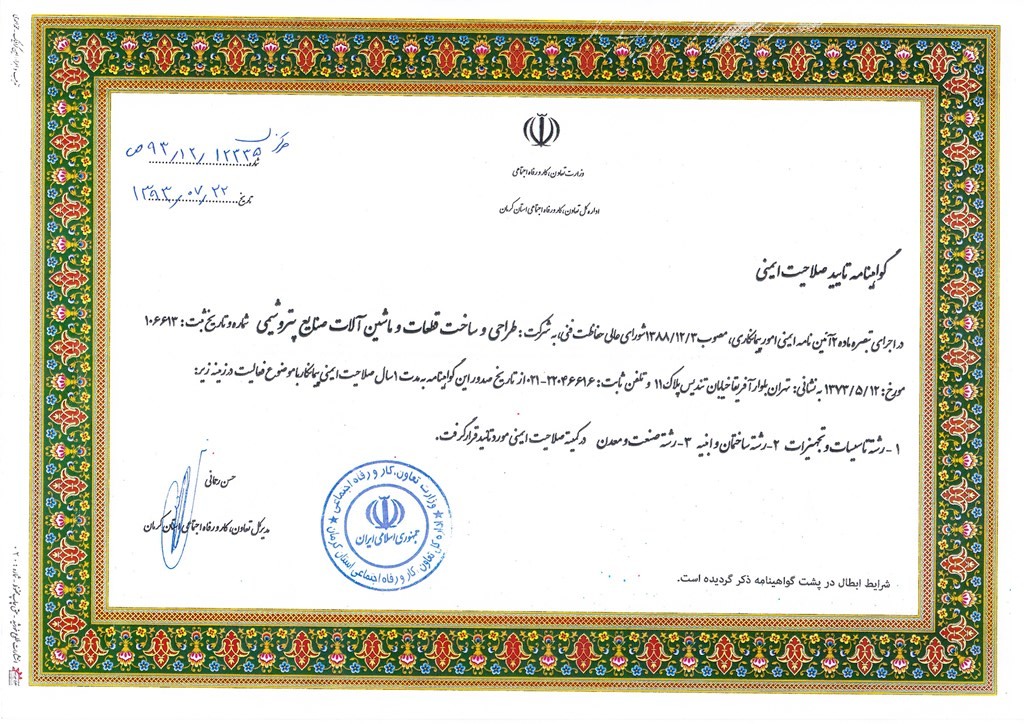 وزارت تعاون، کار و رفاه اجتماعی
اداره کل تعاون، کار و رفاه اجتماعی استان کرمان
شماره: ۹۳/۱۲/۱۲۲۳۵
تاریخ: ۱۳۹۳/۰۷/۲۲
گواهینامه تایید صلاحیت ایمنی
در اجرای تبصره ماده ۲ آئین نامه ایمنی امور پیمانکاری، مصوب ۱۳۸۸/۱۲/۳ شورای عالی حفاظت فنی، به شرکت: طراحی و ساخت قطعات و ماشین آلات صنایع پتروشیمی شماره و تاریخ ثبت: ۱۰۶۶۱۳
مورخ: ۱۳۷۳/۵/۱۲ به نشانی: تهران بلوار آفریقا خیابان تندیس پلاک ۱۱ و تلفن ثابت: ۲۲۰۴۶۶۱۶-۰۲۱ از تاریخ صدور این گواهینامه به مدت ۱ سال صلاحیت ایمنی پیمانکار با موضوع فعالیت در زمینه زیر:
۱-رشته تاسیسات و تجهیزات ۲-رشته ساختمان و ابنیه ۳-رشته صنعت و معدن در کمیته صلاحیت ایمنی مورد تائید قرار گرفت.
حسن رحمانی
مدیر کل تعاون، کار و رفاه اجتماعی استان کرمان
وزارت تعاون، کار و رفاه اجتماعی
جمهوری اسلامی ایران
اداره کل تعاون، کار و رفاه اجتماعی استان کرمان
شرایط ابطال در پشت گواهینامه ذکر گردیده است.